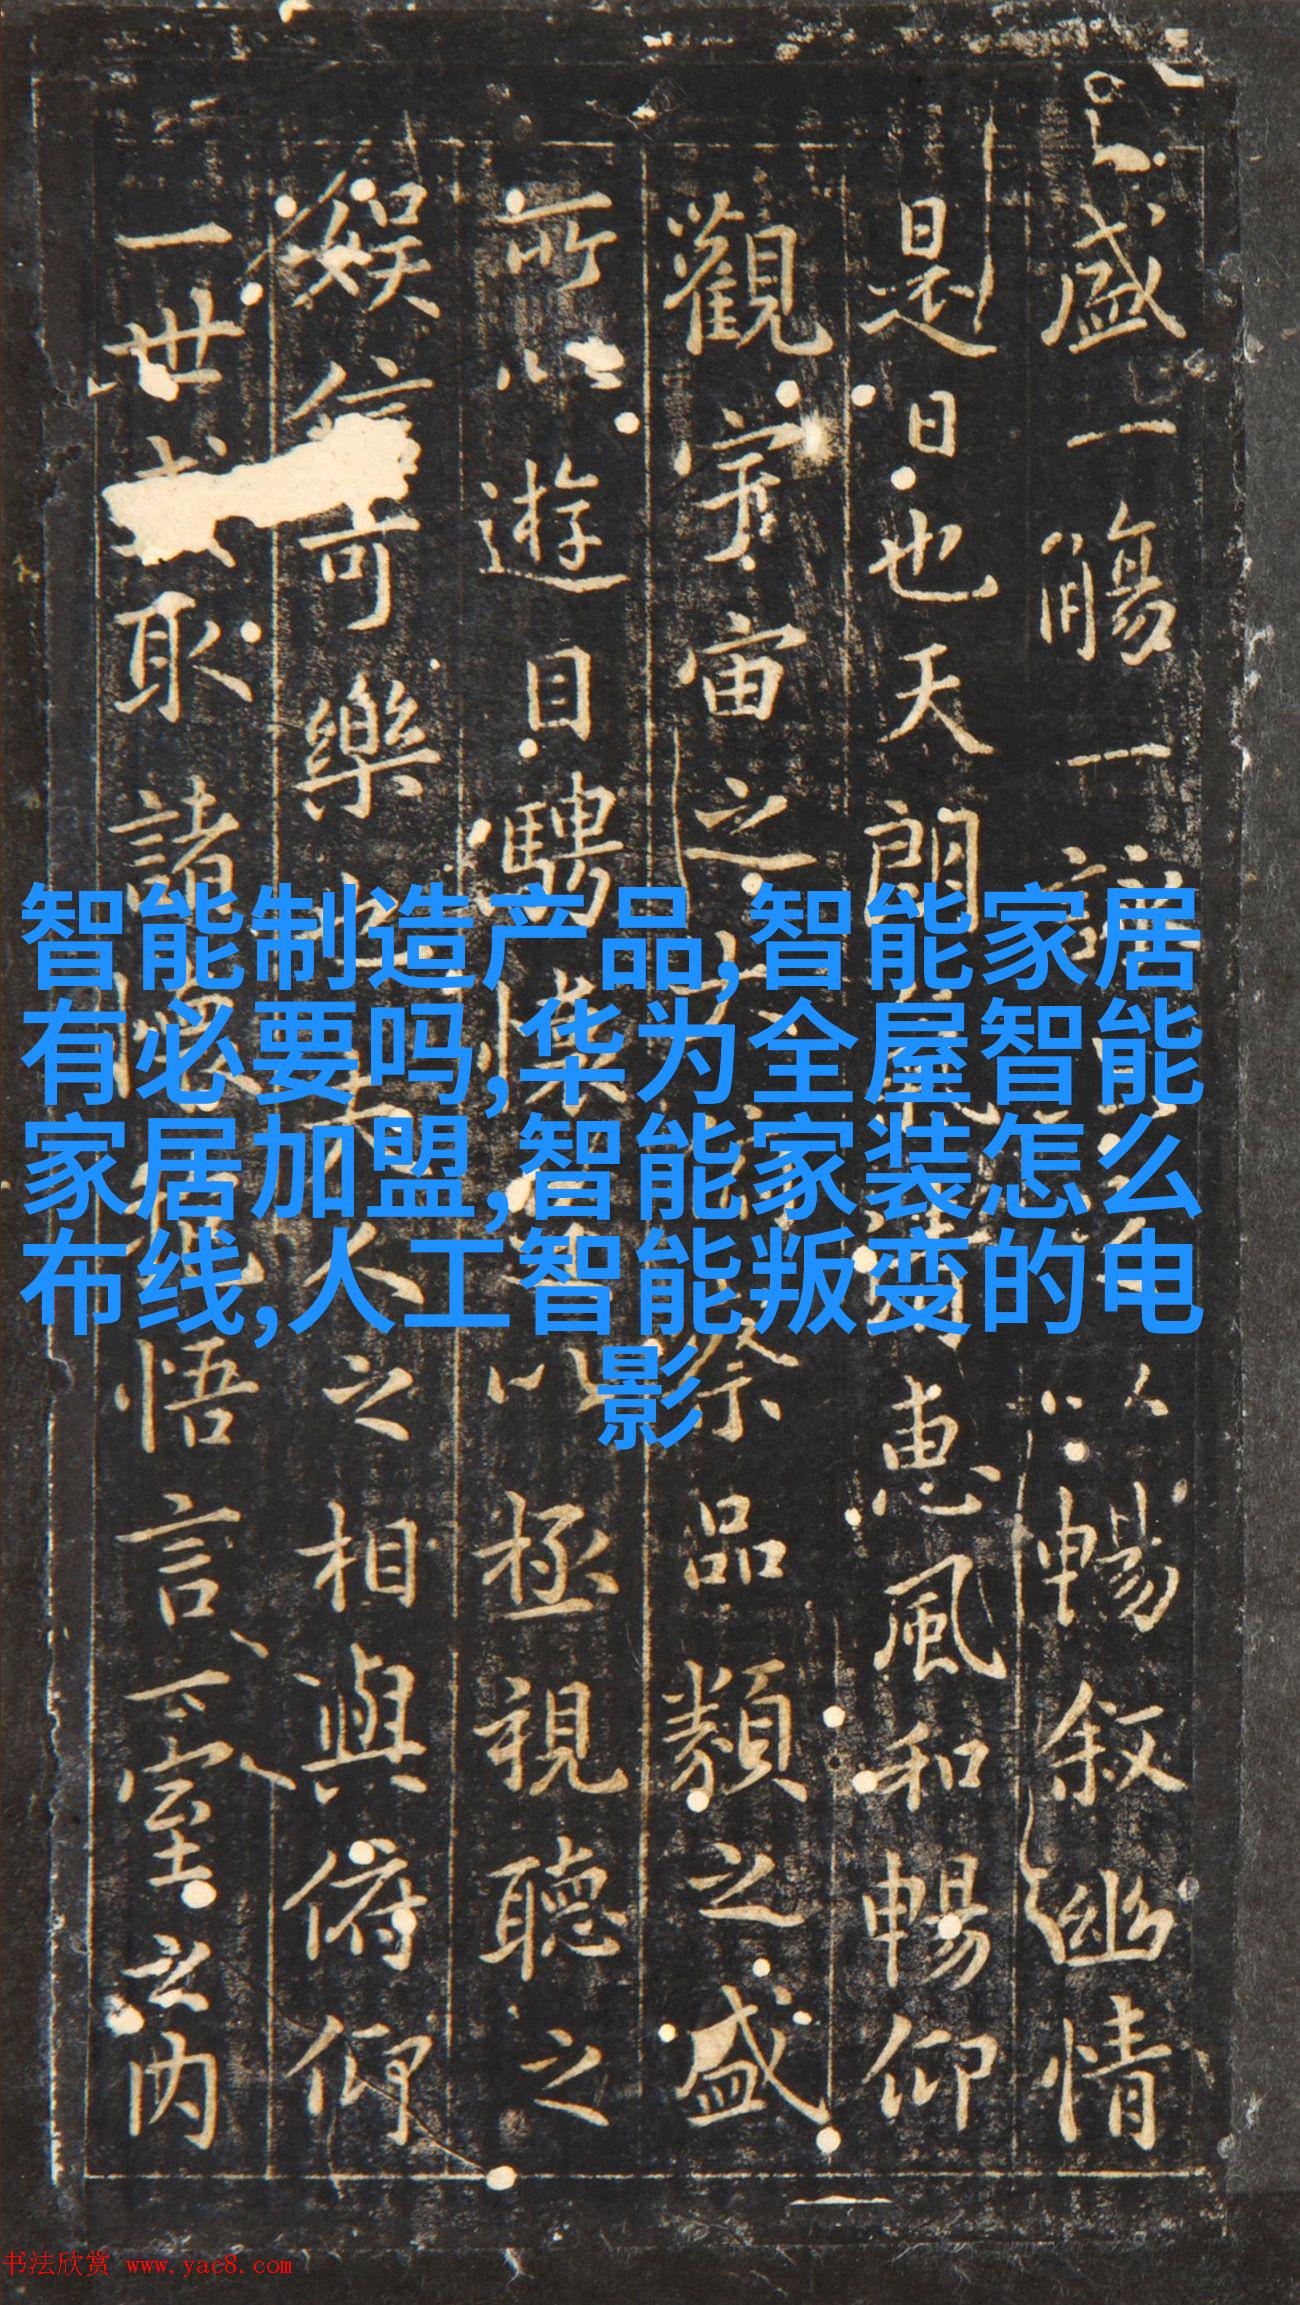 盛一觴一以暢敘幽情
是日也天朗惠風和暢仰
觀宇宙之品類之盛
所以遊目騁懷以極視聽之
娛信可樂人之相與俯仰
一世取諸悟言一室之內
智能制造产品,智能家居
有必要吗,华为全屋智能
家居加盟,智能家装怎么
布线,人工智能叛变的电
影
书法欣赏 www.yac8.com